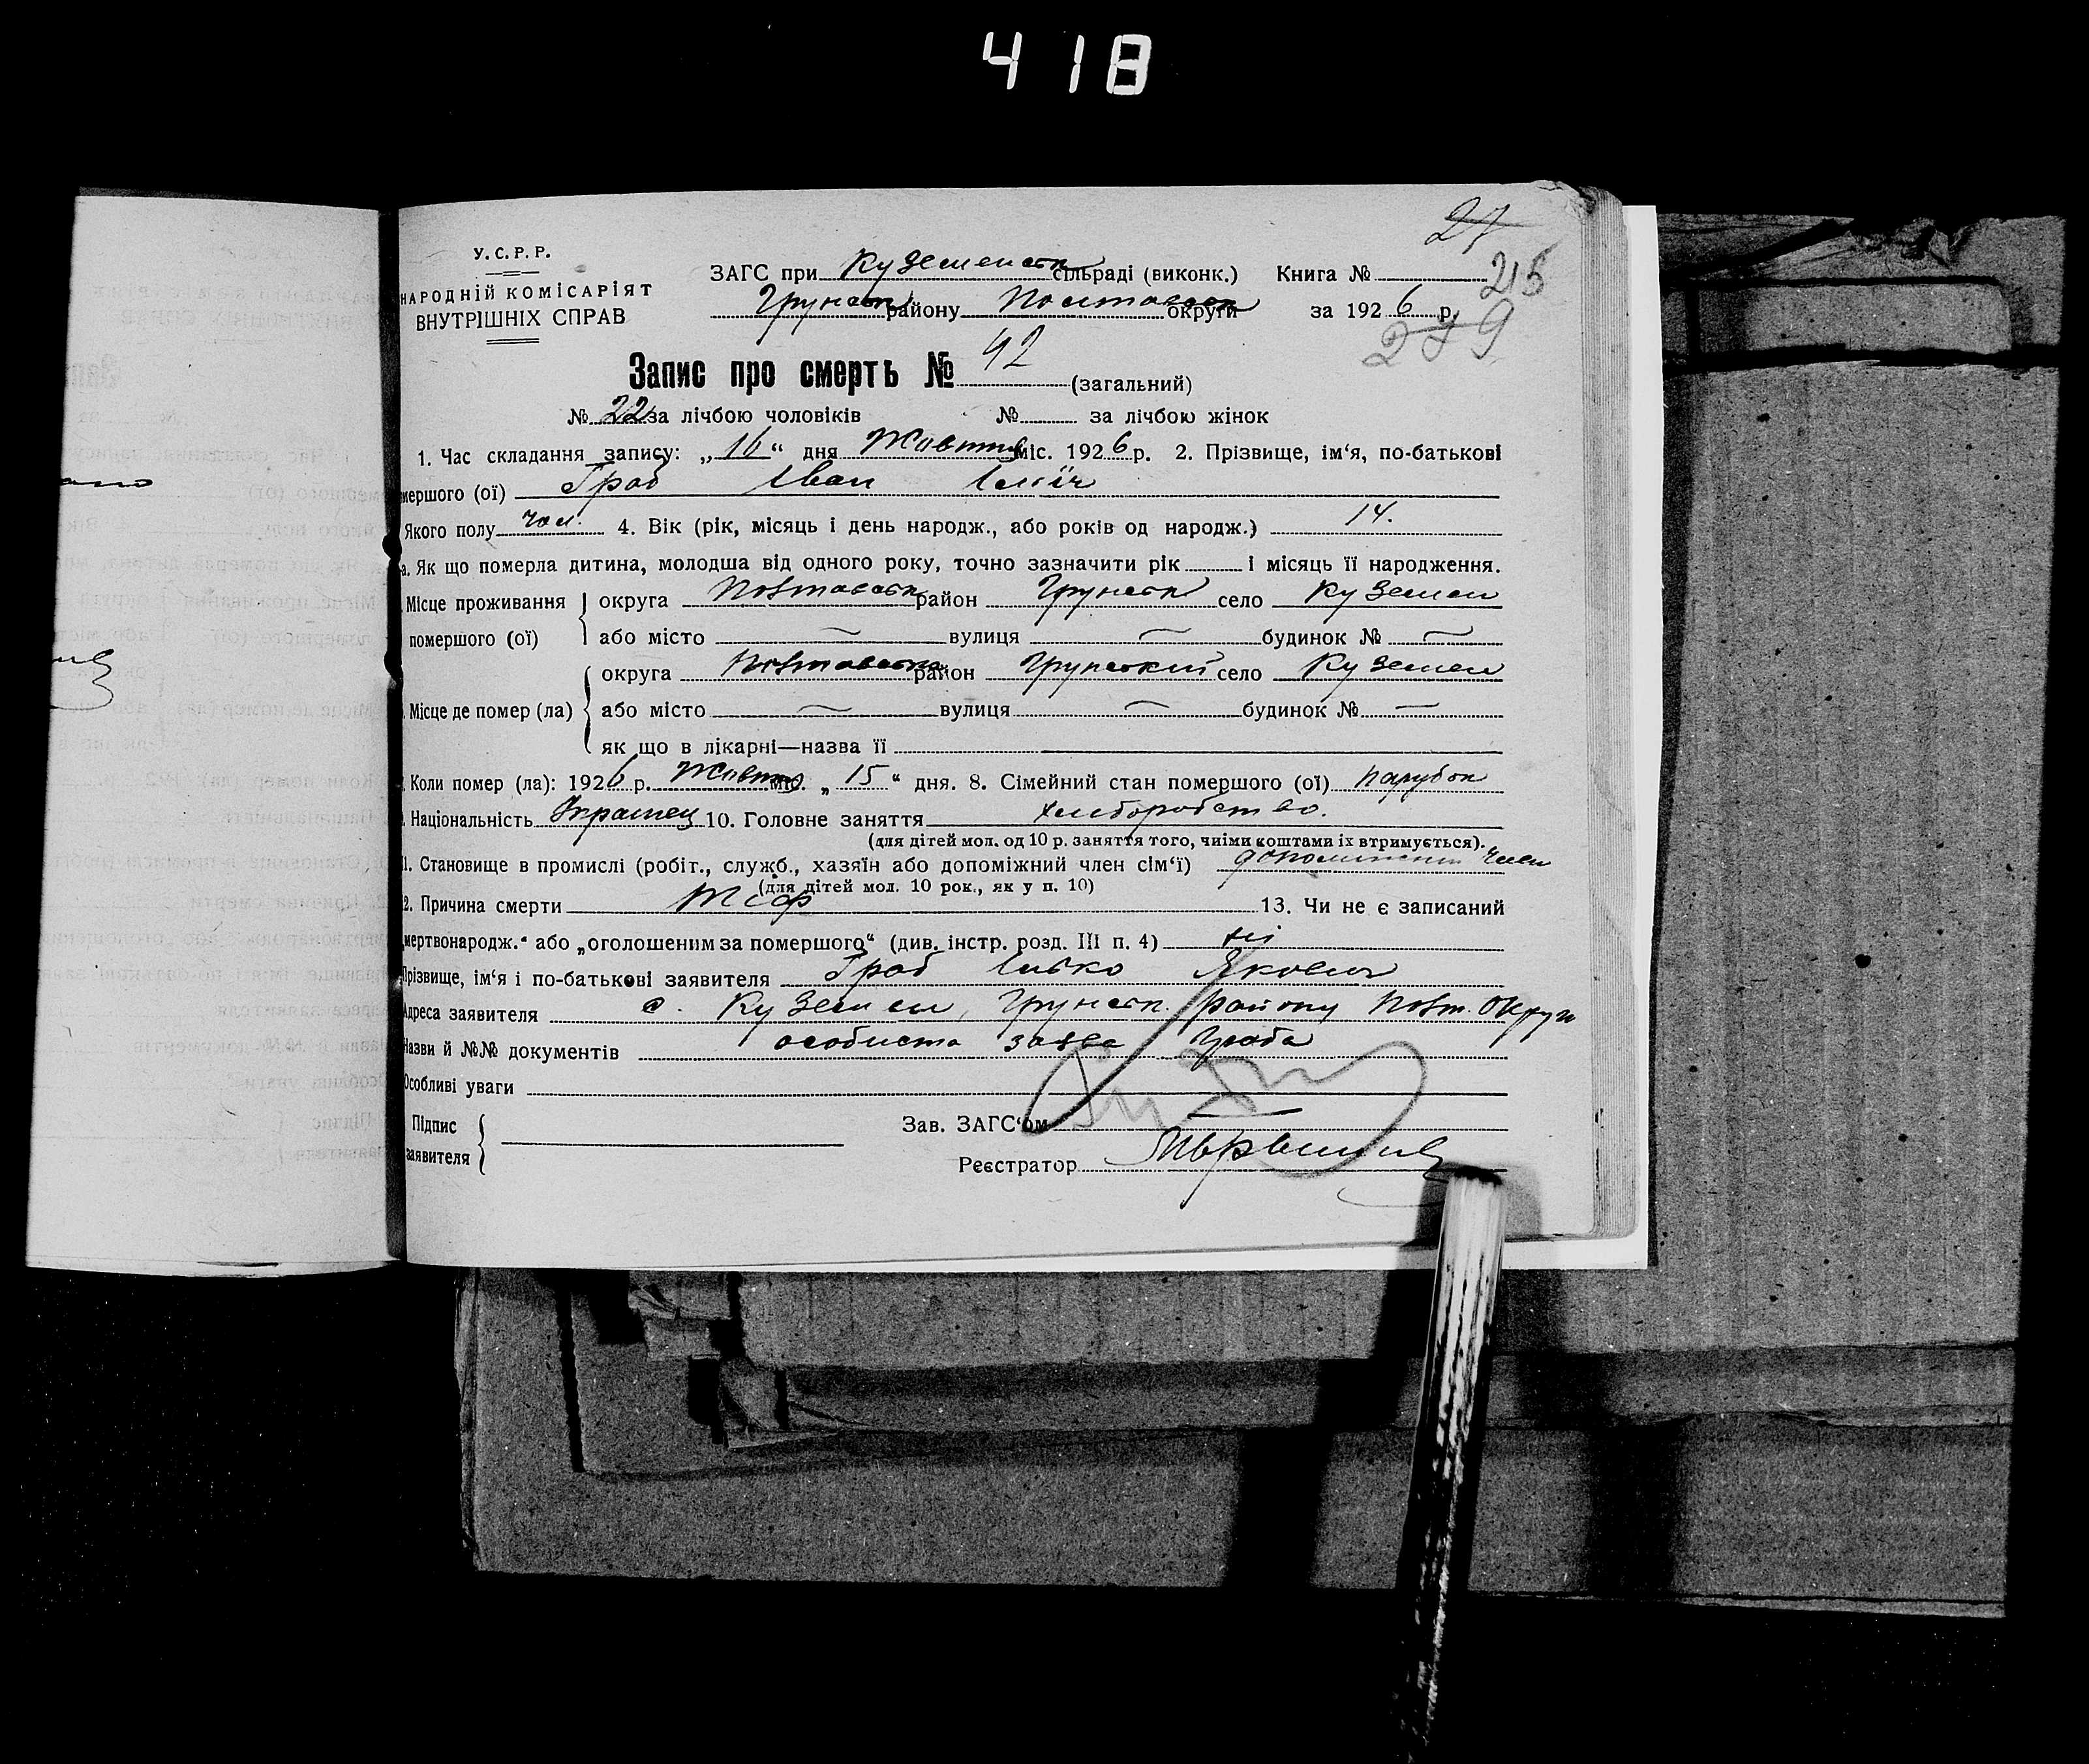 418
27
У.С.Р.Р.
НАРОДНІЙ КОМІСАРІЯТ
ВНУТРІШНІХ СПРАВ
ЗАГС при Куземенськ сільраді (виконк.) Книга № 215
Грунськ району Полтавськ округи за 1926 р.
279
Запис про смерть № 42 (загальний)
№ 22 за лічбою чоловіків № за лічбою жінок
1. Час складання запису: „16“ дня Жовтня міс. 1926 р. 2. Прізвище, ім‘я, по-батькові
мершого (ої) Граб Іван Ілліч
Якого полу чол. 4. Вік (рік, місяць і день народж., або років од народж.) 14.
а. Як що померла дитина, молодша від одного року, точно зазначити рік і місяць її народження.
Місце проживання округа Полтавськ район Грунськ село Куземен
помершого (ої) або місто — вулиця — будинок № —
округа Полтавськ район Грунський село Куземен
Місце де помер (ла) або місто — вулиця — будинок № —
як що в лікарні—назва її
Коли помер (ла): 1926 р. Жовтн міс. „15“ дня. 8. Сімейний стан помершого (ої) парубок
Національність Українец 10. Головне заняття хліборобство.
(для дітей мол. од 10 р. заняття того, чиїми коштами їх втримується).
11. Становище в промислі (робіт., служб., хазяїн або допоміжний член сім‘ї) допоміжни член
(для дітей мол. 10 рок., як у п. 10)
2. Причина смерти Тіф 13. Чи не є записаний
„мертвонародж.“ або „оголошеним за помершого“ (див. інстр. розд. III п. 4) ні
Прізвище, ім‘я і по-батькові заявителя Граб Ілько Якович
Адреса заявителя с. Куземен, Грунськ. району Полт. Округи
Назви й №№ документів особиста заява Граба
Особливі уваги
Підпис
заявителя
Зав. ЗАГС‘ом
Реєстратор